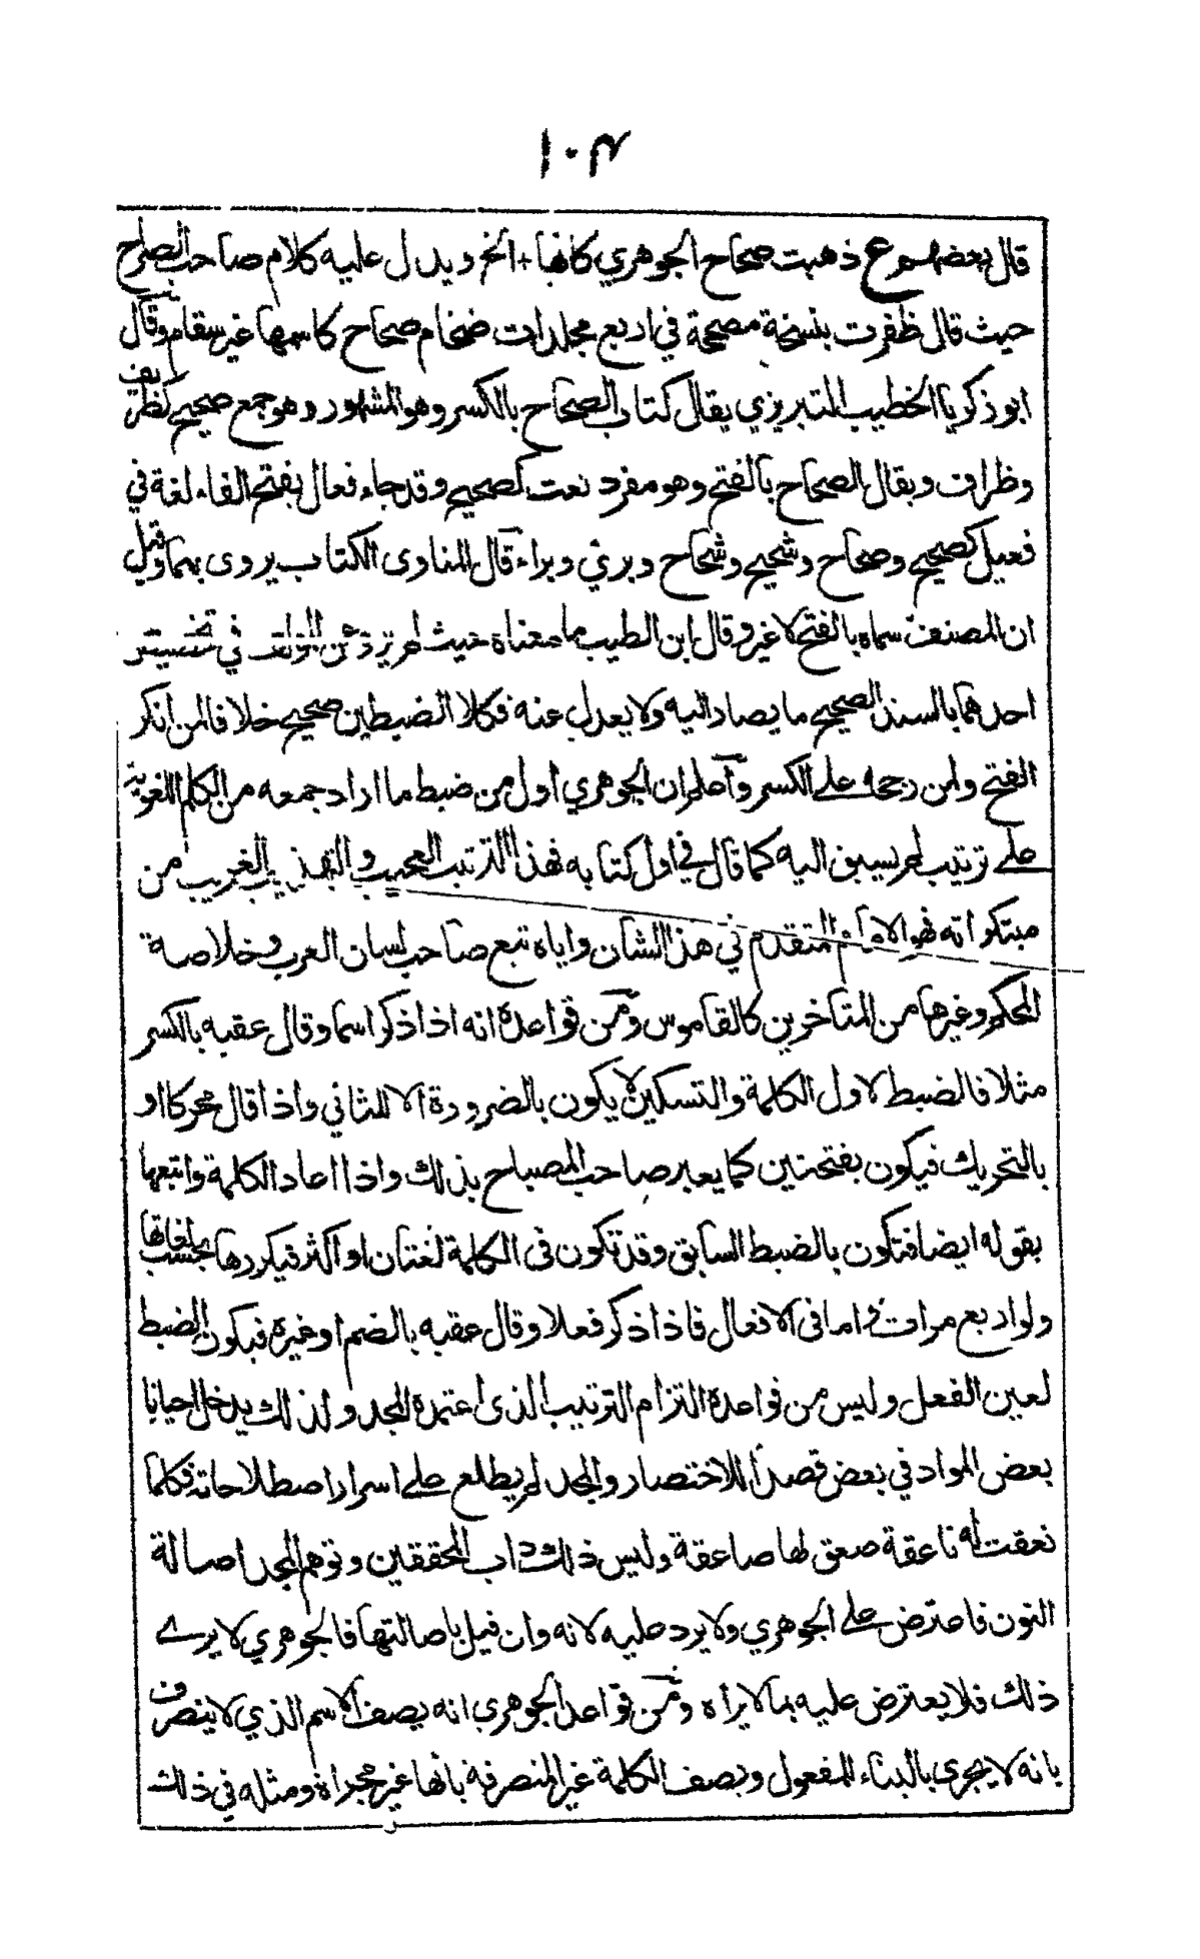 ١٠٣
قال بعضهم ع ذهبت صحاح الجوهري كانها + الخ ويدل عليه كلام صاحب الصراح
حيث قال ظفرت بنسخة مصححة في اربع مجلدات ضخام صحاح كاسمها غير سقام وقال
ابو زكريا الخطيب التبريزي يقال كتاب الصحاح بالكسر وهو المشهور وهو جمع صحيح كظريف
وظراف ويقال الصحاح بالفتح وهو مفرد نعت كصحيح وقد جاء فعال بفتح الفاء لغة في
فعيل كصحيح وصحاح وشحيح وشحاح وبرئ وبراء قال المناوى الكتاب يروى بهما وقيل
ان المصنف سماه بالفتح لا غير وقال ابن الطيب ما معناه حيث لم يرد عن المؤلف في تخصيص
احدهما بالسند الصحيح ما يصار اليه ولا يعدل عنه فكلا الضبطين صحيح خلافا لمن انكر
الفتح ولمن رجحه على الكسر واعلم ان الجوهري اول من ضبط ما اراد جمعه من الكلم اللغوية
على ترتيب لم يسبق اليه كما قال في اول كتابه فهذا الترتيب العجيب والتهذيب الغريب من
مبتكراته فهو الامام المتقدم في هذا الشان واياه تبع صاحب لسان العرب وخلاصة
المحكم وغيرها من المتاخرين كالقاموس ومن قواعده انه اذا ذكر اسما وقال عقبه بالكسر
مثلا فالضبط لاول الكلمة والتسكين لا يكون بالضرورة الا للثاني واذا قال محركا او
بالتحريك فيكون بفتحتين كما يعبر صاحب المصباح بذلك واذا اعاد الكلمة واتبعها
بقوله ايضا فتكون بالضبط السابق وقد تكون فى الكلمة لغتان او اكثر فيكررها بحسب لغاتها
ولو اربع مرات واما فى الافعال فاذا ذكر فعلا وقال عقبه بالضم او غيره فيكون الضبط
لعين الفعل وليس من قواعده التزام الترتيب الذى اعتمده المجد ولذلك يدخل احيانا
بعض المواد في بعض قصدا للاختصار والمجد لم يطلع على اسرار اصطلاحاته فكلما
نعقت له ناعقة صعق لها صاعقة وليس ذلك داب المحققين وتوهم المجد اصالة
النون فاعترض على الجوهري ولا يرد عليه لانه وان قيل باصالتها فالجوهري لا يرے
ذلك فلا يعترض عليه بما لا يراه ومن قواعد الجوهرى انه يصف الاسم الذي لا ينصرف
بانه لا يجرى بالبناء للمفعول ويصف الكلمة غير المنصرفة بانها غير مجراة ومثله في ذلك